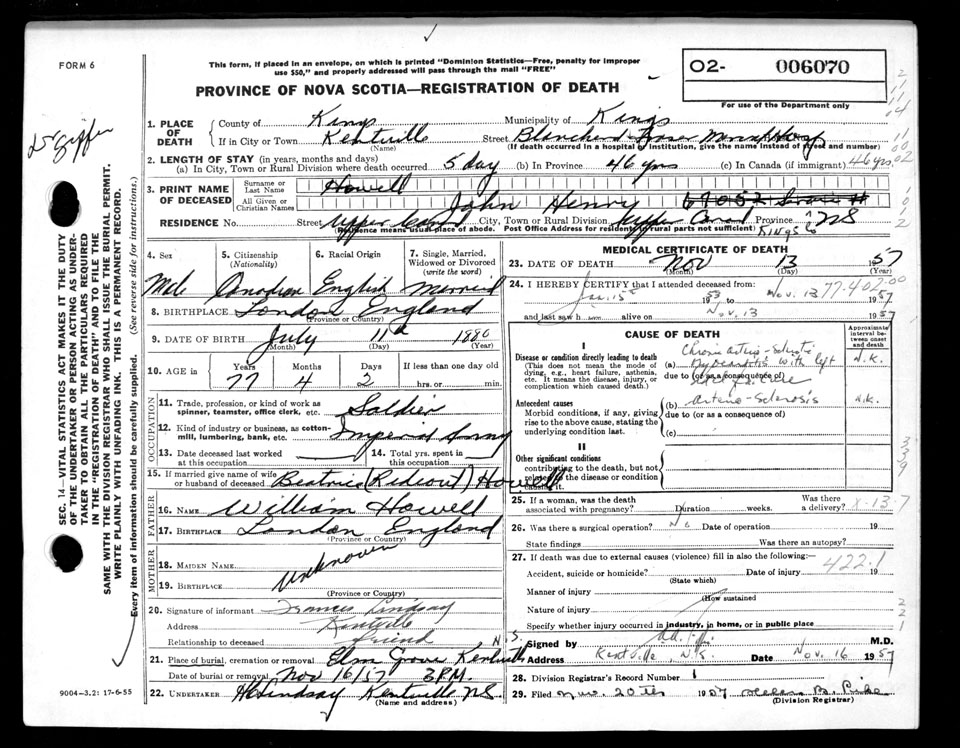 FORM 6
This form, if placed in an envelope, on which is printed "Dominion Statistics—Free, penalty for improper
use $50," and properly addressed will pass through the mail "FREE"
PROVINCE OF NOVA SCOTIA—REGISTRATION OF DEATH
O2- 006070
For use of the Department only
Dr Giffin
1. PLACE OF DEATH
County of Kings Municipality of Kings
If in City or Town Kentville Street Blanchard Fraser Memorial Hosp
(Name) (If death occurred in a hospital or institution, give the name instead of street and number)
2. LENGTH OF STAY (in years, months and days)
(a) In City, Town or Rural Division where death occurred 5 day (b) In Province 46 yrs (c) In Canada (if immigrant) 46 yrs.
3. PRINT NAME OF DECEASED
Surname or Last Name Howell
All Given or Christian Names John Henry
RESIDENCE No. Street Upper City, Town or Rural Division Upper Canard Province NS
Kings Co
(Residence means usual place of abode. Post Office Address for residents of rural parts not sufficient)
4. Sex Male
5. Citizenship (Nationality) Canadian
6. Racial Origin English
7. Single, Married, Widowed or Divorced (write the word) Married
8. BIRTHPLACE London England
(Province or Country)
9. DATE OF BIRTH July 11th 1880
(Month) (Day) (Year)
10. AGE in Years Months Days If less than one day old
77 4 2 hrs. or min.
OCCUPATION
11. Trade, profession, or kind of work as spinner, teamster, office clerk, etc. Soldier
12. Kind of industry or business, as cotton-mill, lumbering, bank, etc. Imperial Army
13. Date deceased last worked at this occupation
14. Total yrs. spent in this occupation
15. If married give name of wife or husband of deceased Beatrice (Rideout) Howell
FATHER
16. NAME William Howell
17. BIRTHPLACE London England
(Province or Country)
MOTHER
18. MAIDEN NAME unknown
19. BIRTHPLACE
(Province or Country)
20. Signature of informant Frances Lindsay
Address Kentville N.S.
Relationship to deceased friend
21. Place of burial, cremation or removal Elm Grove Kentville
Date of burial or removal Nov 16/57 3 P.M.
22. UNDERTAKER H Lindsay Kentville NS
(Name and address)
9004-3.2: 17-6-55
SEC. 14—VITAL STATISTICS ACT MAKES IT THE DUTY
OF THE UNDERTAKER OR PERSON ACTING AS UNDER-
TAKER TO OBTAIN ALL THE PARTICULARS REQUIRED
IN THE "REGISTRATION OF DEATH" AND TO FILE THE
SAME WITH THE DIVISION REGISTRAR WHO SHALL ISSUE THE BURIAL PERMIT.
WRITE PLAINLY WITH UNFADING INK. THIS IS A PERMANENT RECORD.
Every item of information should be carefully supplied. (See reverse side for instructions.)
MEDICAL CERTIFICATE OF DEATH
23. DATE OF DEATH Nov 13 1957
(Month) (Day) (Year)
24. I HEREBY CERTIFY that I attended deceased from:
Jan. 15th 1953 to Nov. 13 1957
77-402.00
and last saw h alive on Nov. 13 1957
CAUSE OF DEATH
Approximate interval between onset and death
I
Disease or condition directly leading to death
(This does not mean the mode of dying, e.g., heart failure, asthenia, etc. It means the disease, injury, or complication which caused death.)
(a) Chronic arterio-sclerotic myocarditis with left N.K.
due to (or as a consequence of)
Antecedent causes
Morbid conditions, if any, giving rise to the above cause, stating the underlying condition last.
(b) Arterio-sclerosis N.K.
due to (or as a consequence of)
(c)
II
Other significant conditions contributing to the death, but not related to the disease or condition causing it.
25. If a woman, was the death associated with pregnancy? Duration weeks. Was there a delivery?
X-13-7
26. Was there a surgical operation? No Date of operation 19
State findings Was there an autopsy?
27. If death was due to external causes (violence) fill in also the following:
422.1
Accident, suicide or homicide? Date of injury 19
(State which)
Manner of injury
(How sustained)
Nature of injury
Specify whether injury occurred in industry, in home, or in public place
Signed by M.D.
Address Kentville, N.S. Date Nov. 16 1957
28. Division Registrar's Record Number 1
29. Filed Nov. 20th 1957 Helen B.
(Division Registrar)